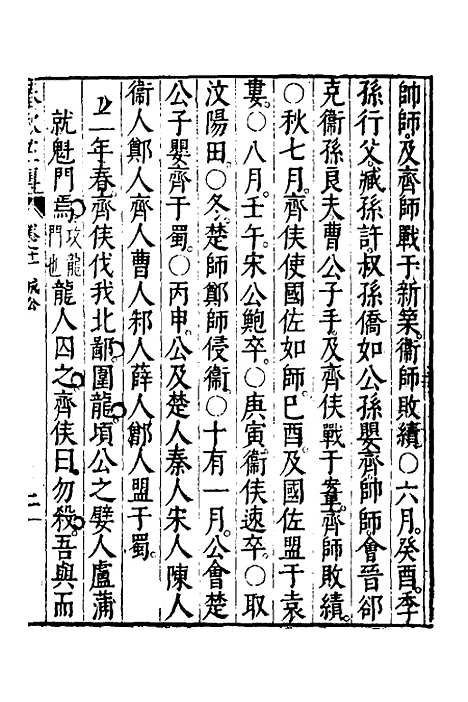 帥師及齊師戰于新築衞師敗績○六月癸酉季
孫行父臧孫許叔孫僑如公孫嬰齊帥師會晉郤
克衞孫良夫曹公子手及齊侯戰于鞌齊師敗績
○秋七月齊侯使國佐如師己酉及國佐盟于袁
婁○八月壬午宋公鮑卒○庚寅衞侯速卒○取
汶陽田○冬楚師鄭師侵衞○十有一月公會楚
公子嬰齊于蜀○丙申公及楚人秦人宋人陳人
衞人鄭人齊人曹人邾人薛人鄫人盟于蜀
二年春齊侯伐我北鄙圍龍頃公之嬖人盧蒲
就魁門焉攻龍門也龍人囚之齊侯曰勿殺吾與而
卷之十一 成公 二